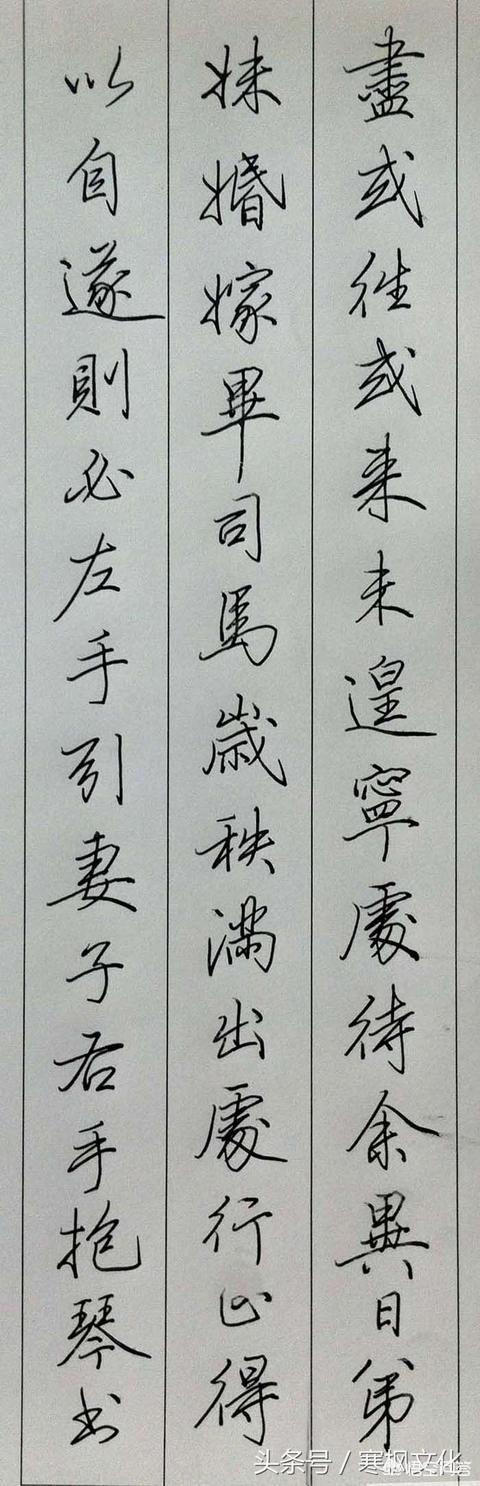 盡或往或来未遑寧處待余異日弟
妹婚嫁畢司馬歲秩滿出處行止得
以自遂則必左手引妻子右手抱琴书
头条号／寒枫文化